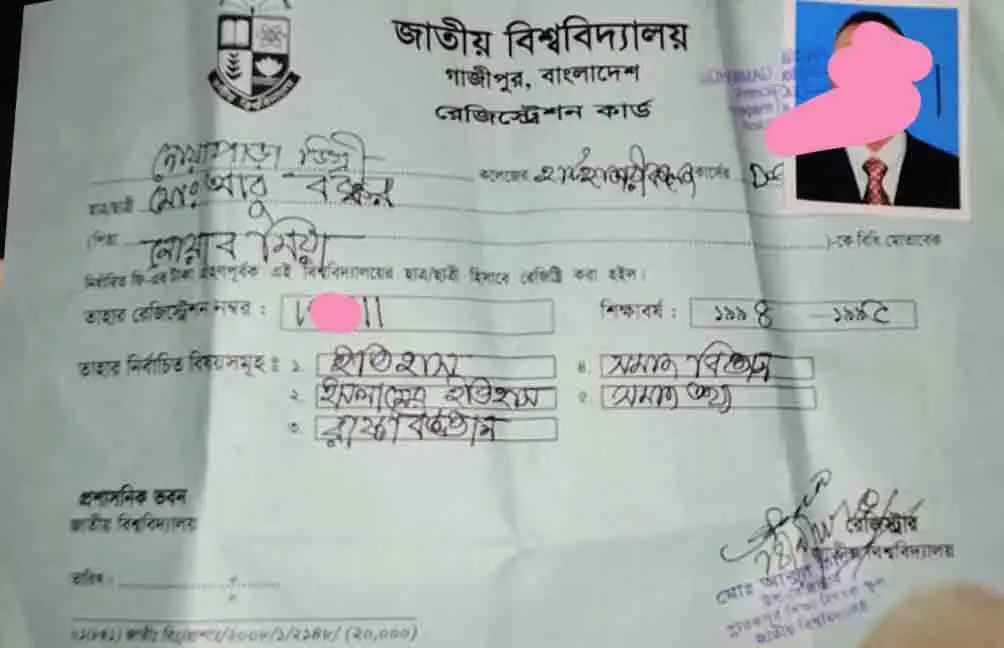 জাতীয় বিশ্ববিদ্যালয়
গাজীপুর, বাংলাদেশ
রেজিস্ট্রেশন কার্ড
নোয়াপাড়া ডিগ্রী কলেজের কোর্সের
ছাত্র/ছাত্রী মোঃ আবু বক্কর
(পিতা নোয়াব মিয়া )-কে বিধি মোতাবেক
নির্ধারিত ফি-এর টাকা গ্রহণপূর্বক এই বিশ্ববিদ্যালয়ের ছাত্র/ছাত্রী হিসাবে রেজিস্ট্রি করা হইল।
তাহার রেজিস্ট্রেশন নম্বর : শিক্ষাবর্ষ : ১৯৯৪ -১৯৯৫
তাহার নির্বাচিত বিষয়সমূহ : ১. ইতিহাস ৪. সমাজ বিজ্ঞান
২. ইসলামের ইতিহাস ৫. সমাজ
৩. রাষ্ট্রবিজ্ঞান
প্রশাসনিক ভবন
জাতীয় বিশ্ববিদ্যালয়
রেজিস্ট্রার
জাতীয় বিশ্ববিদ্যালয়
তারিখ :
জাতীয় বিশ্ববিদ্যালয়